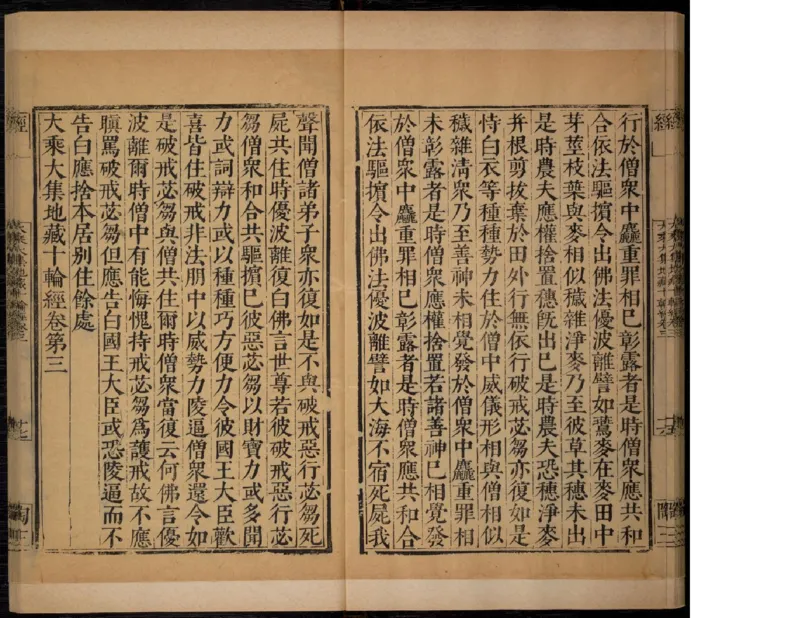 行於僧衆中麤重罪相已彰露者是時僧衆應共和
合依法驅擯令出佛法優波離譬如䅳麥在麥田中
芽莖枝葉與麥相似穢雜淨麥乃至彼草其穗未出
是時農夫應權捨置穗旣出已是時農夫恐穢淨麥
并根剪拔棄於田外行無依行破戒苾芻亦復如是
恃白衣等種種勢力住於僧中威儀形相與僧相似
穢雜淸衆乃至善神未相覺發於僧衆中麤重罪相
未彰露者是時僧衆應權捨置若諸善神已相覺發
於僧衆中麤重罪相已彰露者是時僧衆應共和合
依法驅擯令出佛法優波離譬如大海不宿死屍我
聲聞僧諸弟子衆亦復如是不與破戒惡行苾芻死
屍共住時優波離復白佛言世尊若彼破戒惡行苾
芻僧衆和合共驅擯已彼惡苾芻以財寶力或多聞
力或詞辯力或以種種巧方便力令彼國王大臣歡
喜皆住破戒非法朋中以威勢力陵逼僧衆還令如
是破戒苾芻與僧共住爾時僧衆當復云何佛言優
波離爾時僧中有能悔愧持戒苾芻爲護戒故不應
瞋罵破戒苾芻但應告白國王大臣或恐陵逼而不
告白應捨本居別住餘處
大乘大集地藏十輪經卷第三